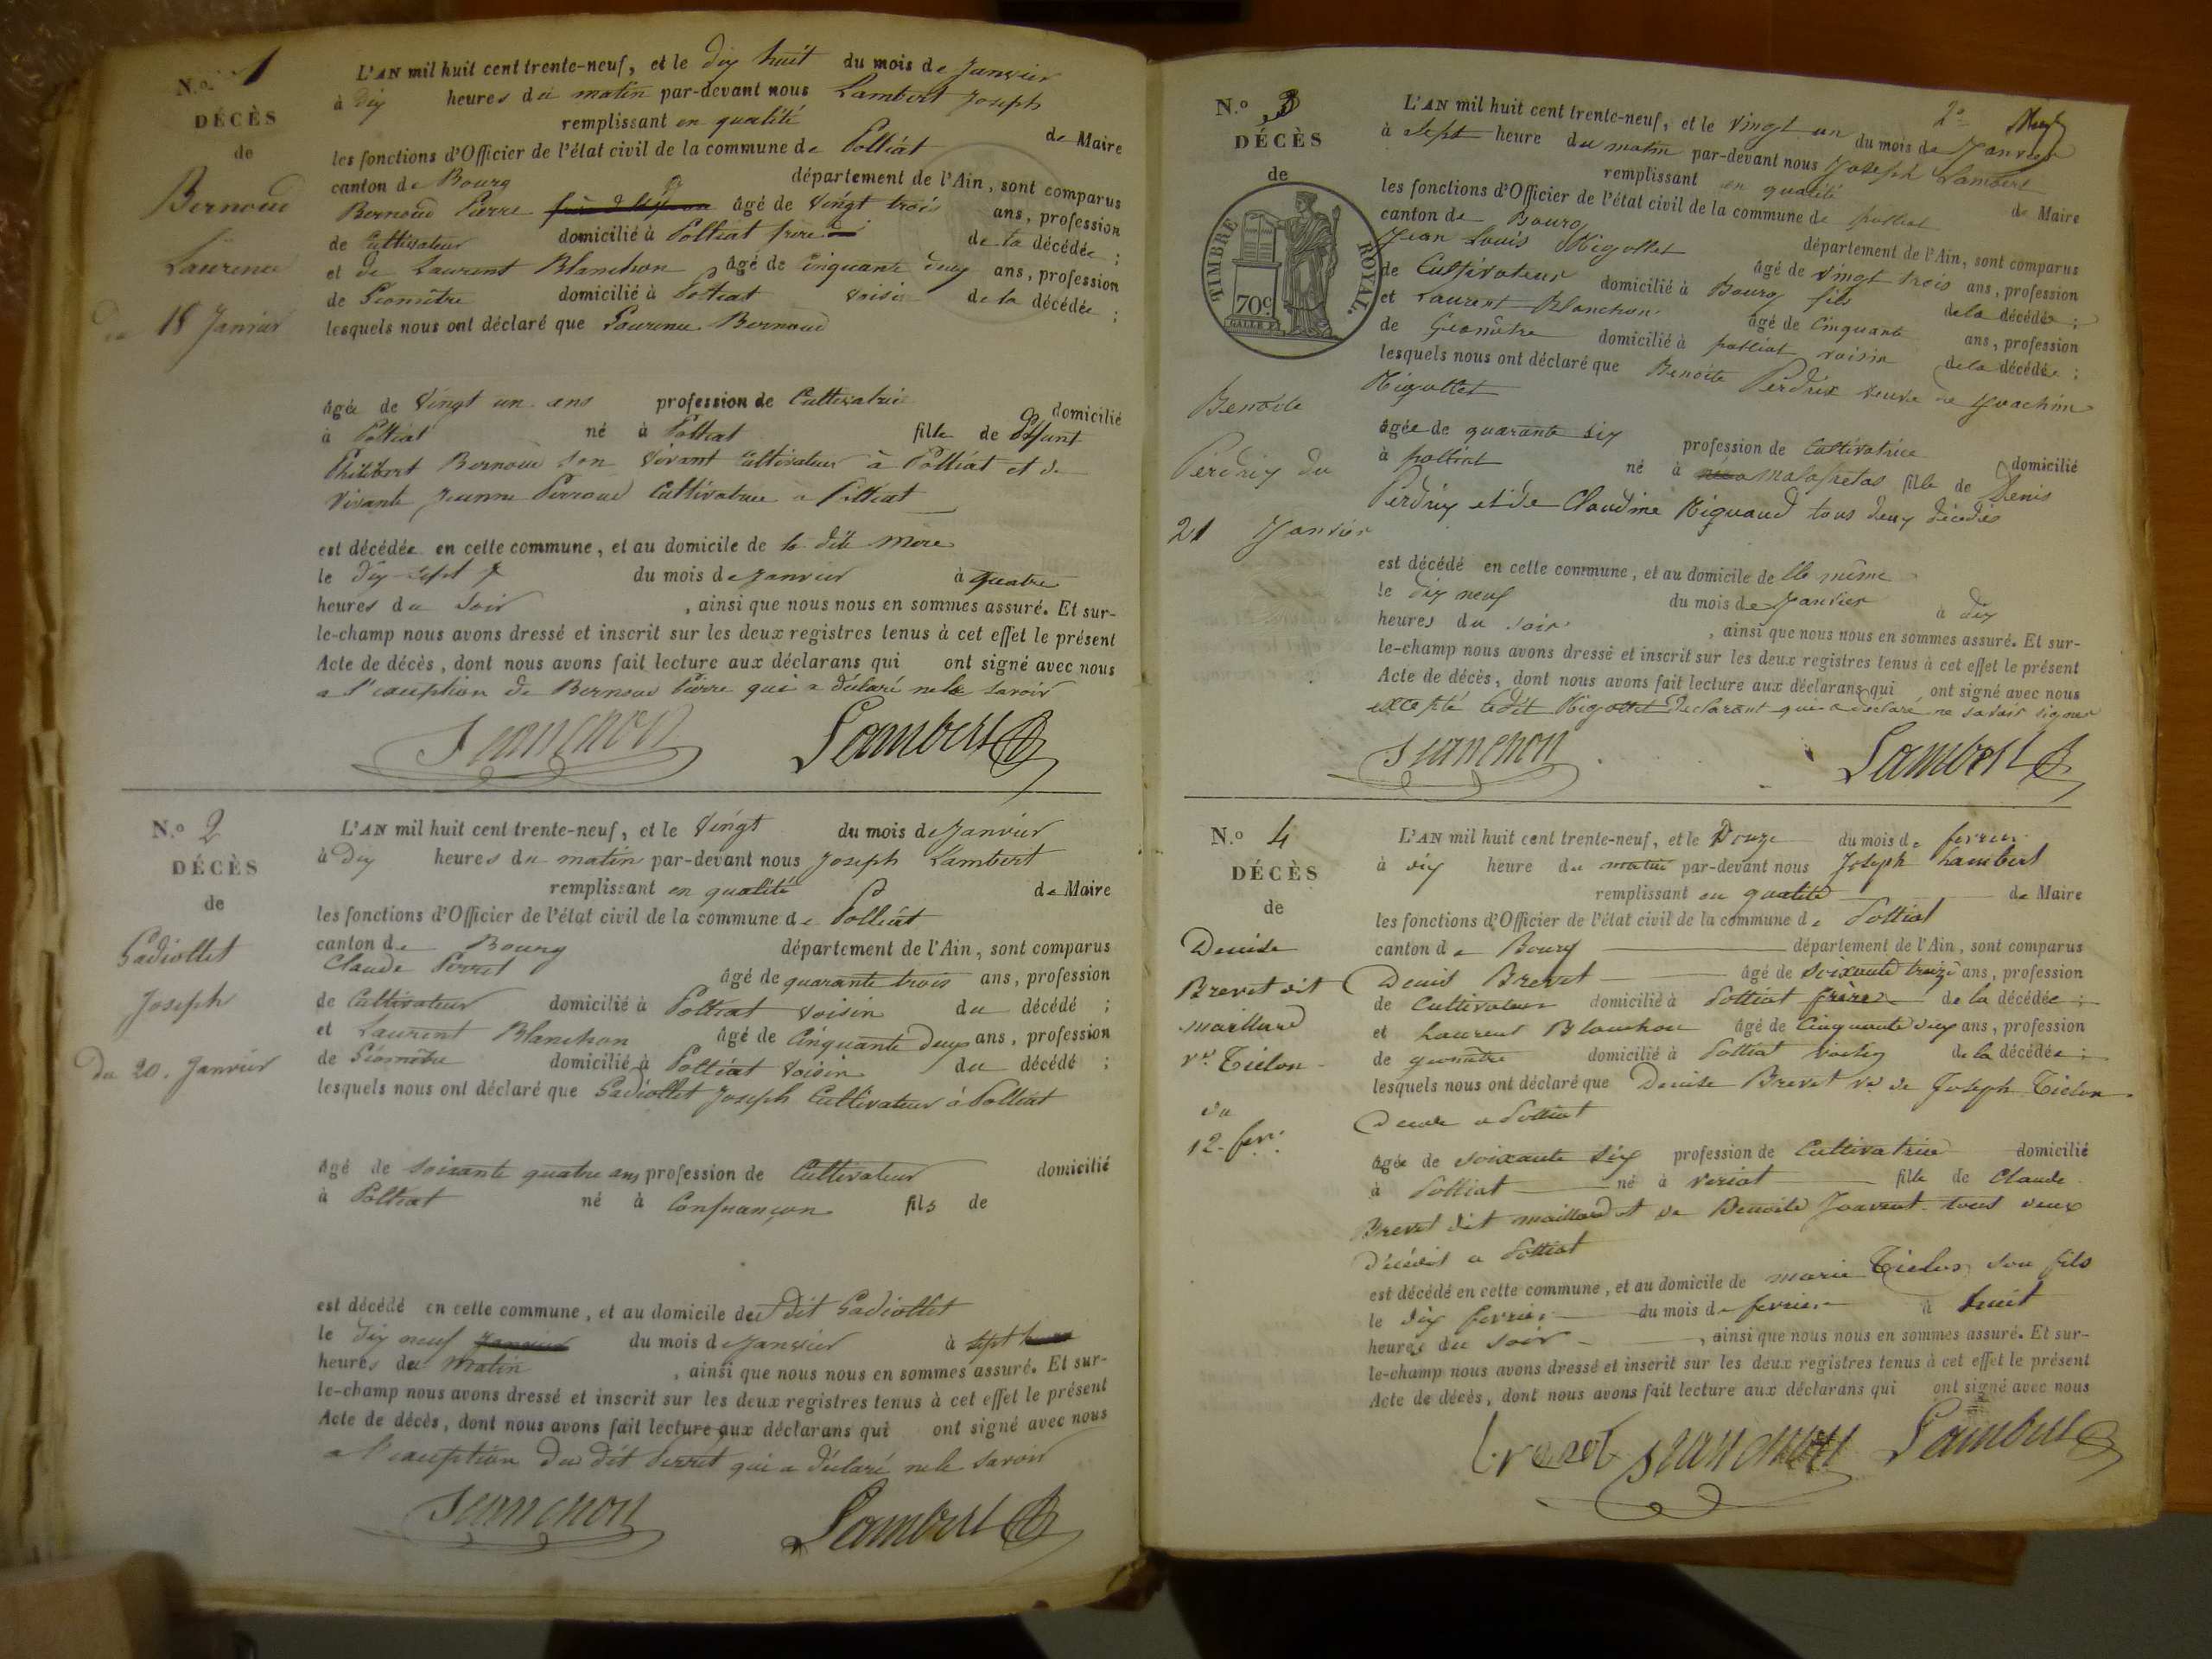 N.o 1
DÉCÈS
de
Bernoud
Laurence
du 18 Janvier
L'AN mil huit cent trente-neuf, et le dix huit du mois de Janvier
à dix heures du matin par-devant nous Lambert Joseph
remplissant en qualité de Maire
les fonctions d'Officier de l'état civil de la commune de Polliat
canton de Bourg département de l'Ain, sont comparus
Bernoud Pierre âgé de vingt trois ans, profession
de Cultivateur domicilié à Polliat frère de la décédée ;
et de Laurent Blanchon âgé de Cinquante deux ans, profession
de Géomètre domicilié à Polliat voisin de la décédée ;
lesquels nous ont déclaré que Laurence Bernoud
âgée de vingt un ans profession de Cultivatrice domicilié
à Polliat né à Polliat fille de deffunt
Philibert Bernoud son vivant Cultivateur à Polliat et de
vivante Jeanne Perroud Cultivatrice a Polliat
est décédée en cette commune, et au domicile de la dite mère
le dix sept du mois de Janvier à quatre
heures du soir, ainsi que nous nous en sommes assuré. Et sur-
le-champ nous avons dressé et inscrit sur les deux registres tenus à cet effet le présent
Acte de décès, dont nous avons fait lecture aux déclarans qui ont signé avec nous
a l'exception de Bernoud Pierre qui a déclaré ne le savoir
Blanchon Lambert
N.o 2
DÉCÈS
de
Gadiollet
Joseph
Du 20. Janvier
L'AN mil huit cent trente-neuf, et le vingt du mois de Janvier
à dix heures du matin par-devant nous Joseph Lambert
remplissant en qualité de Maire
les fonctions d'Officier de l'état civil de la commune de Polliat
canton de Bourg département de l'Ain, sont comparus
Claude Perret âgé de quarante trois ans, profession
de Cultivateur domicilié à Polliat voisin du décédé ;
et Laurent Blanchon âgé de Cinquante deux ans, profession
de Géomètre domicilié à Polliat voisin du décédé ;
lesquels nous ont déclaré que Gadiollet Joseph Cultivateur à Polliat
âgé de soixante quatre ans profession de Cultivateur domicilié
à Polliat né à Confrançon fils de
est décédé en cette commune, et au domicile de dit Gadiollet
le dix neuf Janvier du mois de Janvier à sept
heures du matin, ainsi que nous nous en sommes assuré. Et sur-
le-champ nous avons dressé et inscrit sur les deux registres tenus à cet effet le présent
Acte de décès, dont nous avons fait lecture aux déclarans qui ont signé avec nous
a l'exception du dit Perret qui a déclaré ne le savoir
Blanchon Lambert
N.o 3
DÉCÈS
de
TIMBRE ROYAL.
70c
Benoite
Perdrix du
21 Janvier
2e
L'AN mil huit cent trente-neuf, et le vingt un du mois de Janvier
à sept heure du matin par-devant nous Joseph Lambert
remplissant en qualité de Maire
les fonctions d'Officier de l'état civil de la commune de polliat
canton de Bourg département de l'Ain, sont comparus
Jean Louis Migollet âgé de vingt trois ans, profession
de Cultivateur domicilié à Bourg fils de la décédée ;
et Laurent Blanchon âgé de Cinquante ans, profession
de Géomètre domicilié à polliat voisin de la décédée ;
lesquels nous ont déclaré que Benoite Perdrix veuve de Joachim
Migollet
âgée de quarante six profession de Cultivatrice domicilié
à polliat né à Malafretas fille de Denis
Perdrix et de Claudine Miguaud tous deux décédés
est décédé en cette commune, et au domicile de Elle même
le dix neuf du mois de Janvier à dix
heures du soir, ainsi que nous nous en sommes assuré. Et sur-
le-champ nous avons dressé et inscrit sur les deux registres tenus à cet effet le présent
Acte de décès, dont nous avons fait lecture aux déclarans qui ont signé avec nous
excepté ledit Migollet Declarant qui a déclaré ne savoir signer
Blanchon Lambert
N.o 4
DÉCÈS
de
Denise
Brevet dit
maillard
ve Tielon
du
12. fevr.
L'AN mil huit cent trente-neuf, et le Douze du mois de fevrier
à dix heure du matin par-devant nous Joseph Lambert
remplissant en qualité de Maire
les fonctions d'Officier de l'état civil de la commune de Polliat
canton de Bourg département de l'Ain, sont comparus
Denis Brevet âgé de soixante treize ans, profession
de Cultivateur domicilié à Polliat frère de la décédée ;
et Laurent Blanchon âgé de Cinquante deux ans, profession
de géomètre domicilié à Polliat voisin de la décédée ;
lesquels nous ont déclaré que Denise Brevet ve de Joseph Tielon
a Polliat
âgée de soixante six profession de Cultivatrice domicilié
à Polliat né à viriat fille de Claude
Brevet dit maillard et de Benoite Joavent tous deux
décédés a Polliat
est décédé en cette commune, et au domicile de marie Tielon son fils
le dix fevrier du mois de fevrier à huit
heures du soir, ainsi que nous nous en sommes assuré. Et sur-
le-champ nous avons dressé et inscrit sur les deux registres tenus à cet effet le présent
Acte de décès, dont nous avons fait lecture aux déclarans qui ont signé avec nous
brevet Blanchon Lambert